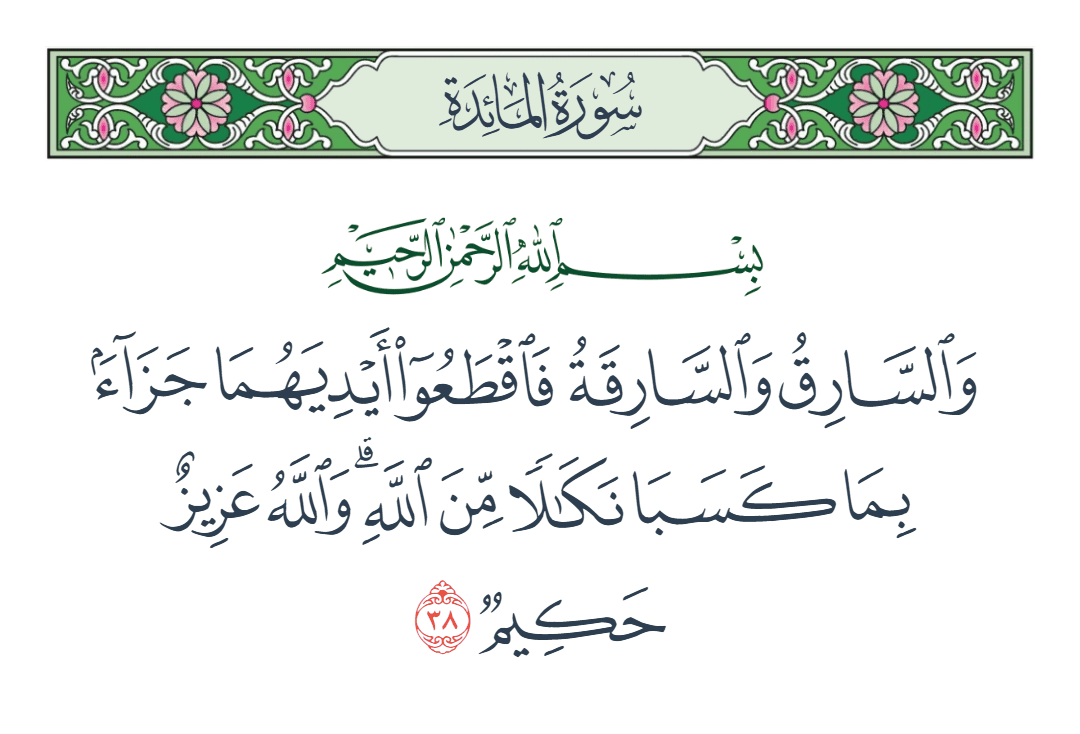 سُورَةُ المَائِدَةِ
بِسْمِ ٱللَّهِ ٱلرَّحْمَٰنِ ٱلرَّحِيمِ
وَٱلسَّارِقُ وَٱلسَّارِقَةُ فَٱقْطَعُوٓا۟ أَيْدِيَهُمَا جَزَآءًۢ
بِمَا كَسَبَا نَكَٰلًا مِّنَ ٱللَّهِ ۗ وَٱللَّهُ عَزِيزٌ
حَكِيمٌ ٣٨